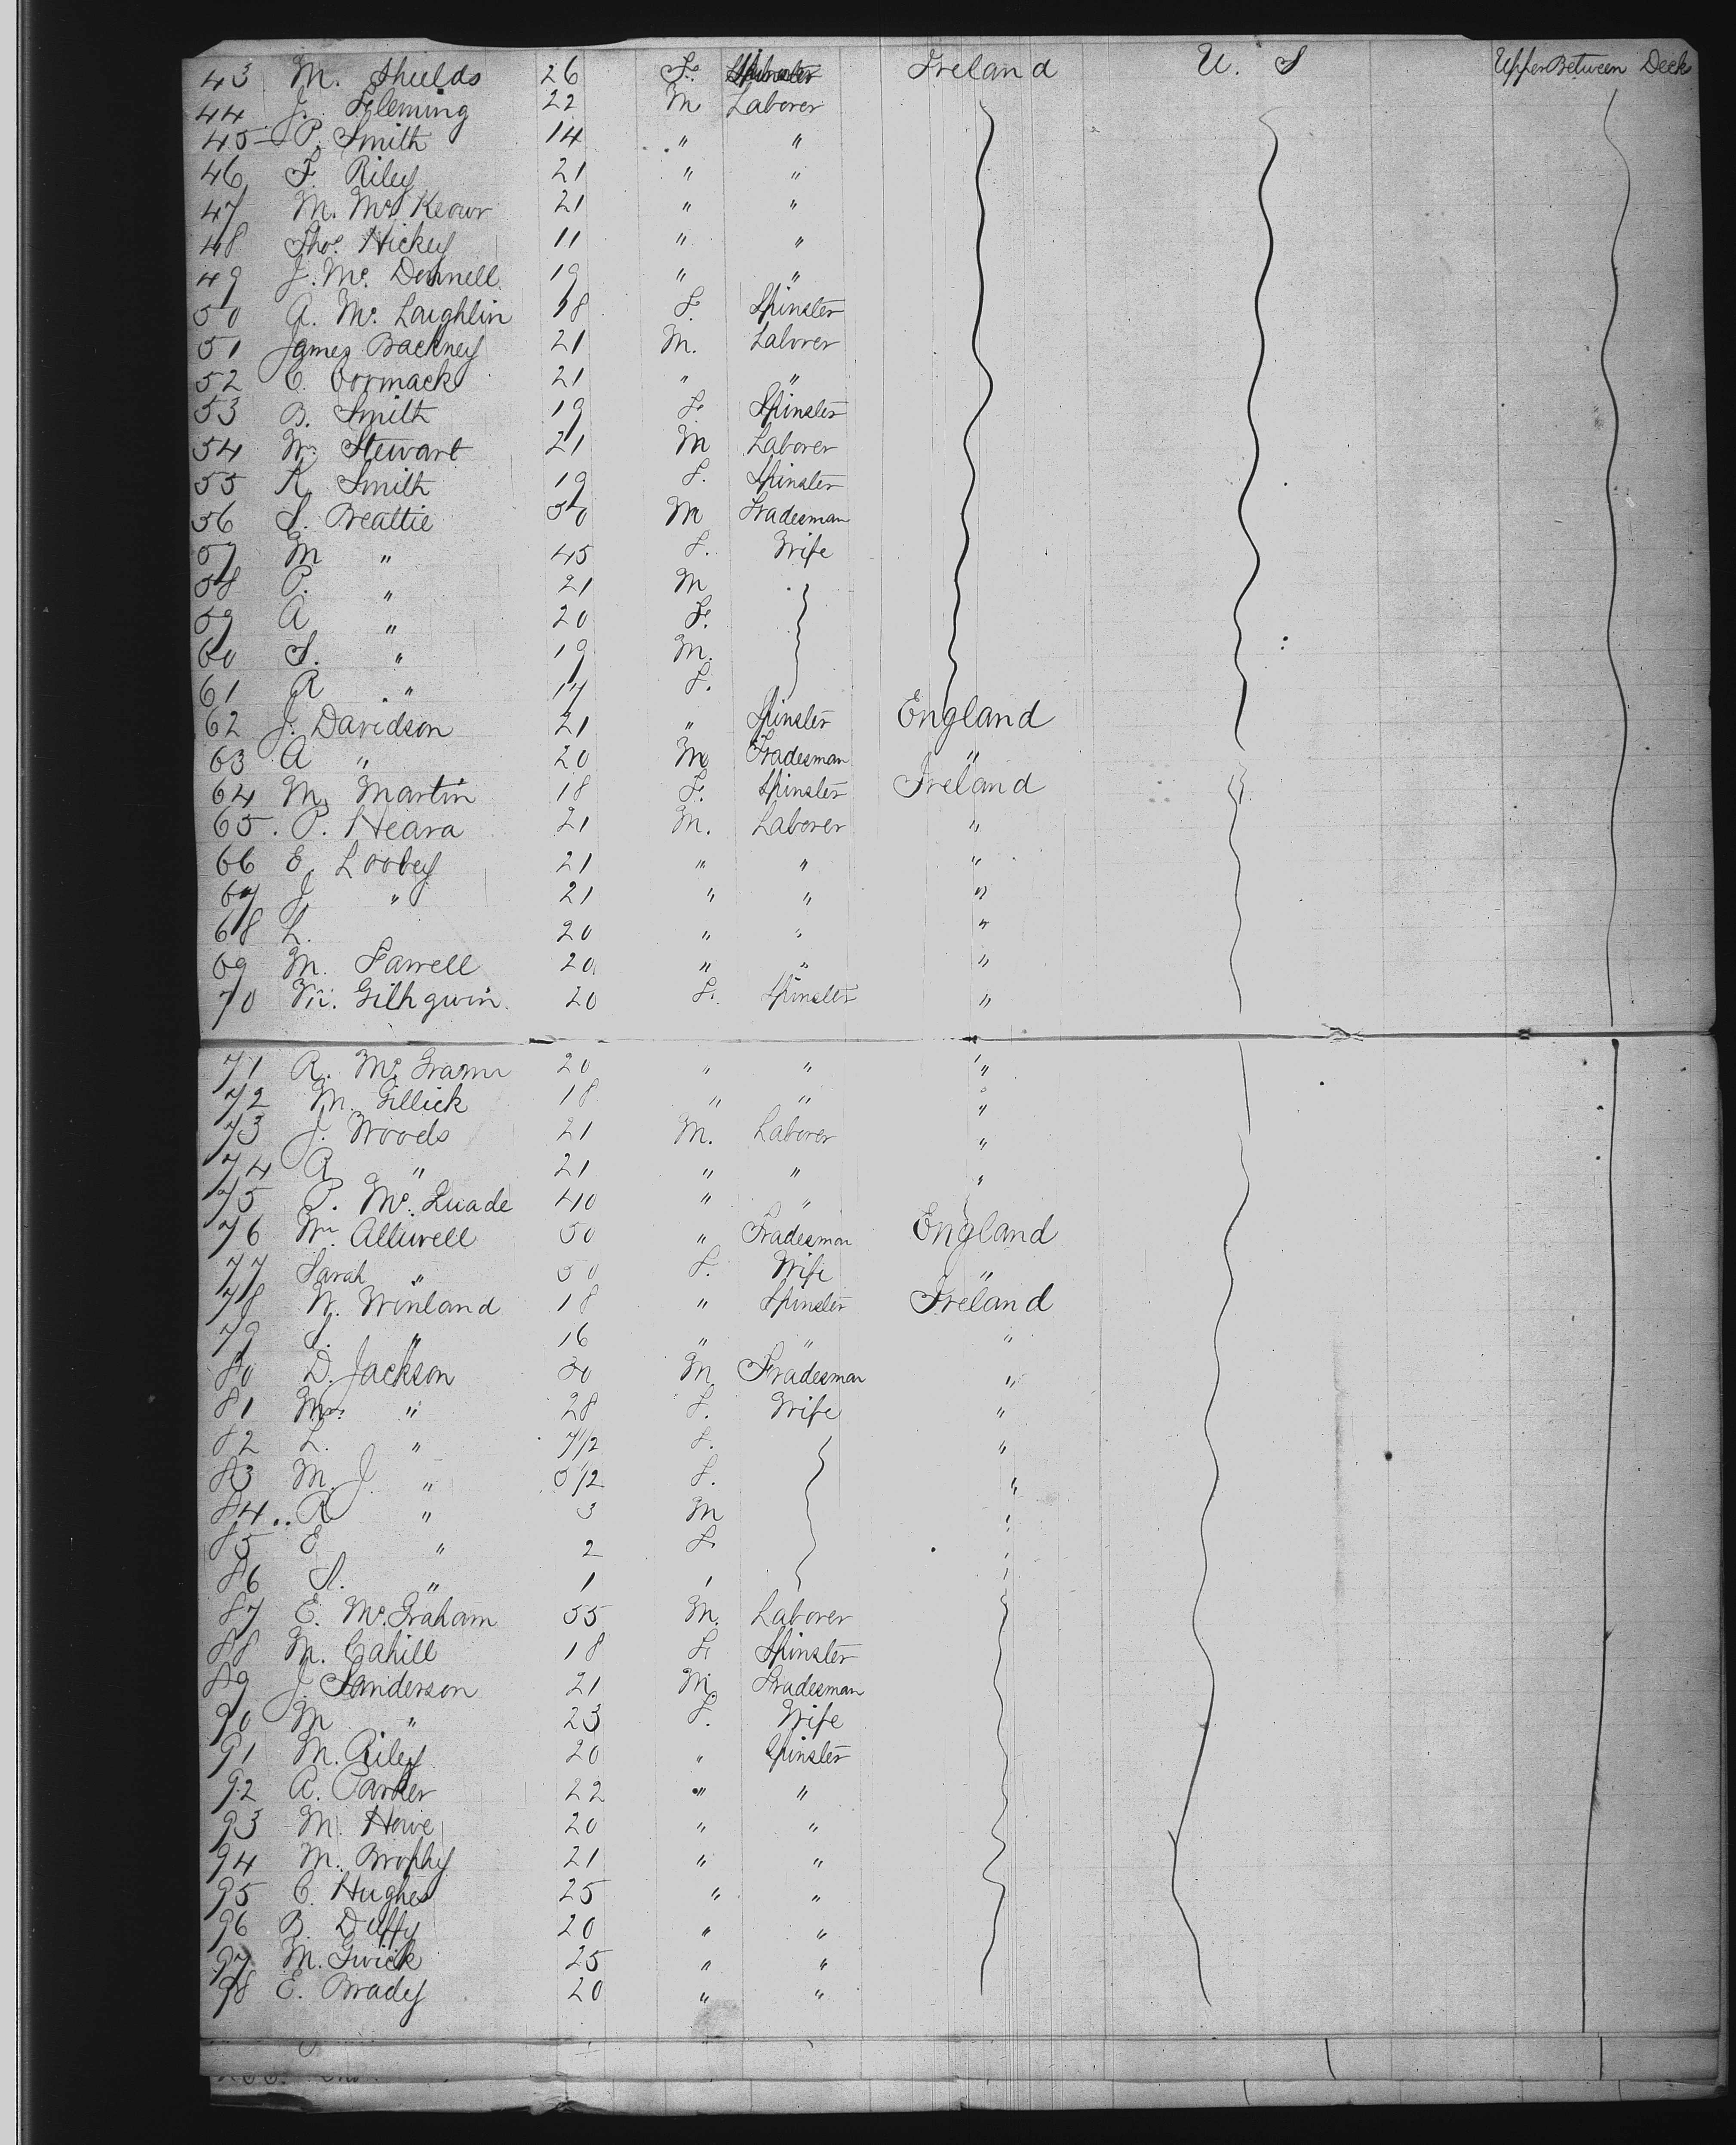 43 M. Shields 26 F. Spinster Ireland U. S Upper Between Decks
44 J. Fleming 22 M Laborer
45 P. Smith 14 " "
46 F. Riley 21 " "
47 M. Mc Keowr 21 " "
48 Thos. Hickey 11 " "
49 J. Mc. Donnell 19 " "
50 A. Mc. Laughlin 18 F. Spinster
51 James Backney 21 M. Laborer
52 C. Cormack 21 " "
53 B. Smith 19 F. Spinster
54 W. Stewart 21 M Laborer
55 K. Smith 19 F. Spinster
56 S. Beattie 50 M Tradesman
57 M " 45 F. Wife
58 P. " 21 M
59 A " 20 F.
60 S. " 19 M.
61 R " 17 F.
62 J. Davidson 21 " Spinster England
63 A " 20 M Tradesman "
64 M. Martin 18 F. Spinster Ireland
65. P. Heara 21 M. Laborer "
66 E. Loobey 21 " " "
67 J " 21 " " "
68 L. 20 " " "
69 M. Farrell 20 " " "
70 M. Gilhgwin. 20 F. Spinster "
71 R. Mc 20 " " "
72 M. Gillick 18 " " "
73 J. Woods 21 M. Laborer "
74 R " 21 " " "
75 P. Mc. Quade 40 " "
76 Wm Alluvell 50 " Tradesman England
77 Sarah " 50 F. Wife "
78 W. Winland 18 " Spinster Ireland
79 J. " 16 " " "
80 D. Jackson 30 M. Tradesman "
81 Mrs " 28 F. Wife "
82 L. " 7 1/2 F. "
83 M. J. " 5 1/2 F. "
84 R " 3 M "
85 E " 2 F "
86 S. " 1 " "
87 E. Mc. Graham 55 M. Laborer
88 M. Cahill 18 F Spinster
89 J. Sanderson 21 M Tradesman
90 M " 23 F. Wife
91 M. Riley 20 " Spinster
92 A. Parker 22 " "
93 M. Howe 20 " "
94 M. Brophy 21 " "
95 C. Hughes 25 " "
96 B. Duffy 20 " "
97 M. Gwick 25 " "
98 E. Brady 20 " "